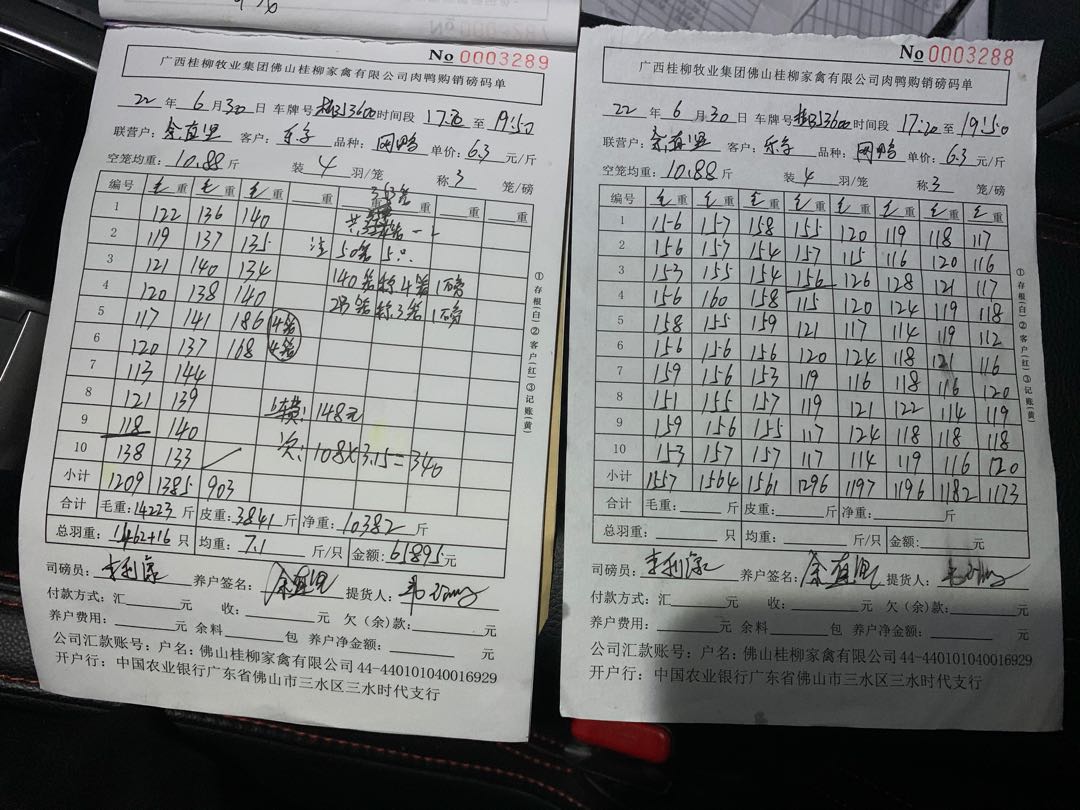 No 0003289
广西桂柳牧业集团佛山桂柳家禽有限公司肉鸭购销磅码单
22 年 6 月 30 日 车牌号 时间段 17:20 至 19:50
联营户: 客户: 乐子 品种: 网鸭 单价: 6.3 元/斤
空笼均重: 10.88 斤 装 4 羽/笼 称 3 笼/磅
编号 毛重 毛重 毛重 重 重 重 重 重
1 122 136 140
2 119 137 135 注 50笼 5只
3 121 140 134 140笼称4笼1磅
4 120 138 140 213笼称3笼1磅
5 117 141 186 4笼
6 120 137 168 4笼
7 113 144
8 121 139 车费: 148元
9 118 140 次: 108×3.15=340
10 138 133
小计 1209 1385 903
合计 毛重: 14223 斤 皮重: 3841 斤 净重: 10382 斤
总羽重: 1462+16 只 均重: 7.1 斤/只 金额: 65895 元
司磅员: 李利 养户签名: 提货人:
付款方式: 汇 元 收: 元 欠(余)款: 元
养户费用: 元 余料 包 养户净金额: 元
公司汇款账号: 户名: 佛山桂柳家禽有限公司 44-440101040016929
开户行: 中国农业银行广东省佛山市三水区三水时代支行
①存根(白)②客户(红)③记账(黄)
No 0003288
广西桂柳牧业集团佛山桂柳家禽有限公司肉鸭购销磅码单
22 年 6 月 30 日 车牌号 时间段 17:20 至 19:50
联营户: 客户: 乐子 品种: 网鸭 单价: 6.3 元/斤
空笼均重: 10.88 斤 装 4 羽/笼 称 3 笼/磅
编号 毛重 毛重 毛重 毛重 毛重 毛重 毛重 毛重
1 156 157 158 155 120 119 118 117
2 156 157 154 157 115 116 120 116
3 153 155 154 156 126 128 121 117
4 156 160 158 115 120 124 119 118
5 158 155 159 121 117 114 119 112
6 156 156 156 120 124 118 121 116
7 159 156 153 119 116 118 116 120
8 151 155 157 119 121 122 114 119
9 159 156 155 117 124 118 118 118
10 153 157 157 117 114 119 116 120
小计 1557 1564 1561 1296 1197 1196 1182 1173
合计 毛重: 斤 皮重: 斤 净重: 斤
总羽重: 只 均重: 斤/只 金额: 元
司磅员: 李利 养户签名: 提货人:
付款方式: 汇 元 收: 元 欠(余)款: 元
养户费用: 元 余料 包 养户净金额: 元
公司汇款账号: 户名: 佛山桂柳家禽有限公司 44-440101040016929
开户行: 中国农业银行广东省佛山市三水区三水时代支行
①存根(白)②客户(红)③记账(黄)